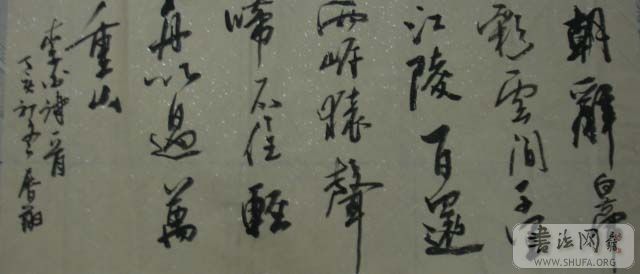 朝辭白帝
彩雲間千里
江陵一日還
两岸猿聲
啼不住輕
舟以過萬
重山
李白诗一首
丁亥初冬
書法网
WWW.SHUFA.ORG